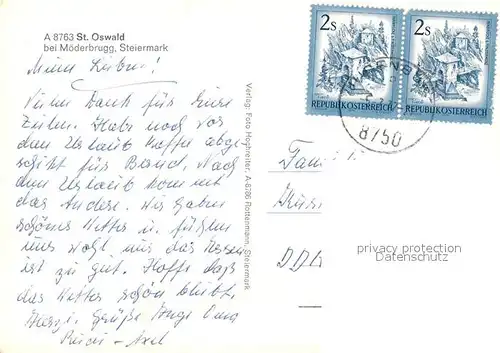 A 8763 St. Oswald
bei Möderbrugg, Steiermark
Meine Lieben!
Vielen Dank für Eure
Zeilen. Habe noch vor
dem Urlaub Kaffe abge
schikt für Bernd, Nach
dem Urlaub kommt
das Andere. Wir haben
schönes Wetter u. fühlen
uns wohl nur das Essen
ist zu gut. Hoffe daß
das Wetter schön bleibt.
Herzl. Grüße Inge Oma
Axel
Verlag: Foto Hochreiter, A-8786 Rottenmann, Steiermark
2s 2s
REPUBLIK ÖSTERREICH REPUBLIK ÖSTERREICH
8750
Fam
DDR
privacy protection
Datenschutz